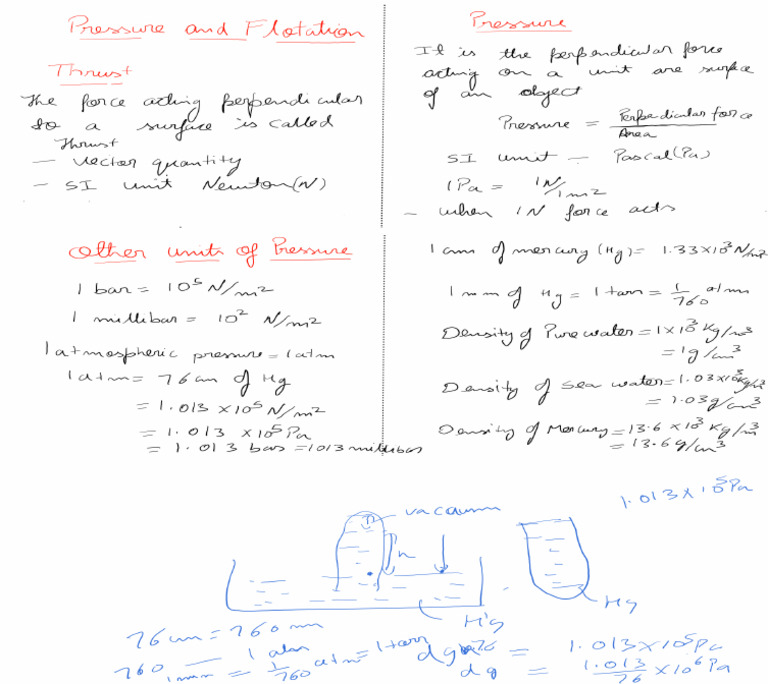 Pressure and Flotation
Thrust
The force acting perpendicular
to a surface is called
Thrust
- Vector quantity
- SI unit Newton(N)
Pressure
It is the perpendicular force
acting on a unit are surface
of an object
Pressure = Perpendicular force / Area
SI unit - Pascal(Pa)
1Pa = 1N/1m2
- when 1N force acts
Other units of Pressure
1 bar = 10^5 N/m2
1 millibar = 10^2 N/m2
1 atmospheric pressure = 1 atm
1 atm = 76 cm of Hg
= 1.013 x 10^5 N/m2
= 1.013 x 10^5 Pa
= 1.013 bars = 1013 millibars
1 cm of mercury (Hg) = 1.33x10^3 N/m2
1 mm of Hg = 1 torr = 1/760 atm
Density of Pure water = 1x10^3 Kg/m3
= 1g/cm3
Density of Sea water = 1.03x10^3 Kg/m3
= 1.03g/cm3
Density of Mercury = 13.6 x10^3 Kg/m3
= 13.6g/cm3
1.013 x 10^5 Pa
vacuum
h
Hg
Hg
76 cm = 760 mm
760 — 1 atm
1 mm = 1/760 atm = 1 torr
= 1.013x10^5 Pa
dg = 1.013/76 x10^6 Pa